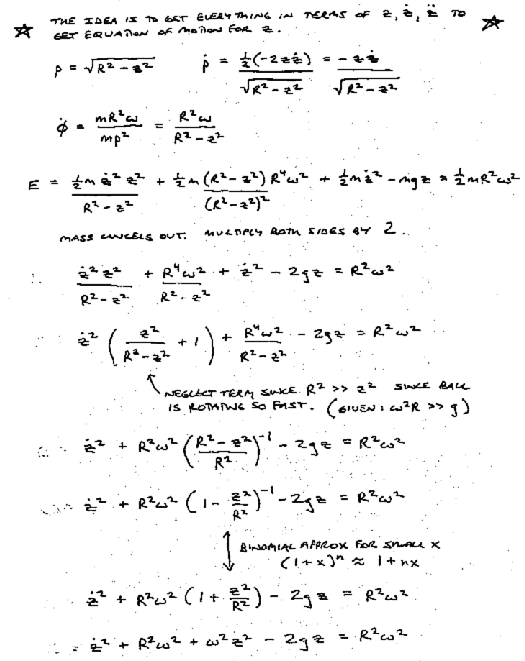 ☆ THE IDEA IS TO GET EVERYTHING IN TERMS OF z, ż, z̈ TO ☆
GET EQUATION OF MOTION FOR z.
ρ = √(R² - z²)   ρ̇ = ½(-2zż)/√(R² - z²) = -zż/√(R² - z²)
φ̇ = mR²ω/mρ² = R²ω/(R² - z²)
E = ½mż²z²/(R² - z²) + ½m(R² - z²)R⁴ω²/(R² - z²)² + ½mż² - mgz = ½mR²ω²
MASS CANCELS OUT. MULTIPLY BOTH SIDES BY 2.
∴ ż²z²/(R² - z²) + R⁴ω²/(R² - z²) + ż² - 2gz = R²ω²
ż² (z²/(R² - z²) + 1) + R⁴ω²/(R² - z²) - 2gz = R²ω²
NEGLECT TERM SINCE R² >> z² SINCE BALL
IS ROTATING SO FAST. (GIVEN: ω²R >> g)
∴ ż² + R²ω² ((R² - z²)/R²)⁻¹ - 2gz = R²ω²
∴ ż² + R²ω² (1 - z²/R²)⁻¹ - 2gz = R²ω²
BINOMIAL APPROX FOR SMALL x
(1+x)ⁿ ≈ 1+nx
ż² + R²ω² (1 + z²/R²) - 2gz = R²ω²
∴ ż² + R²ω² + ω²z² - 2gz = R²ω²